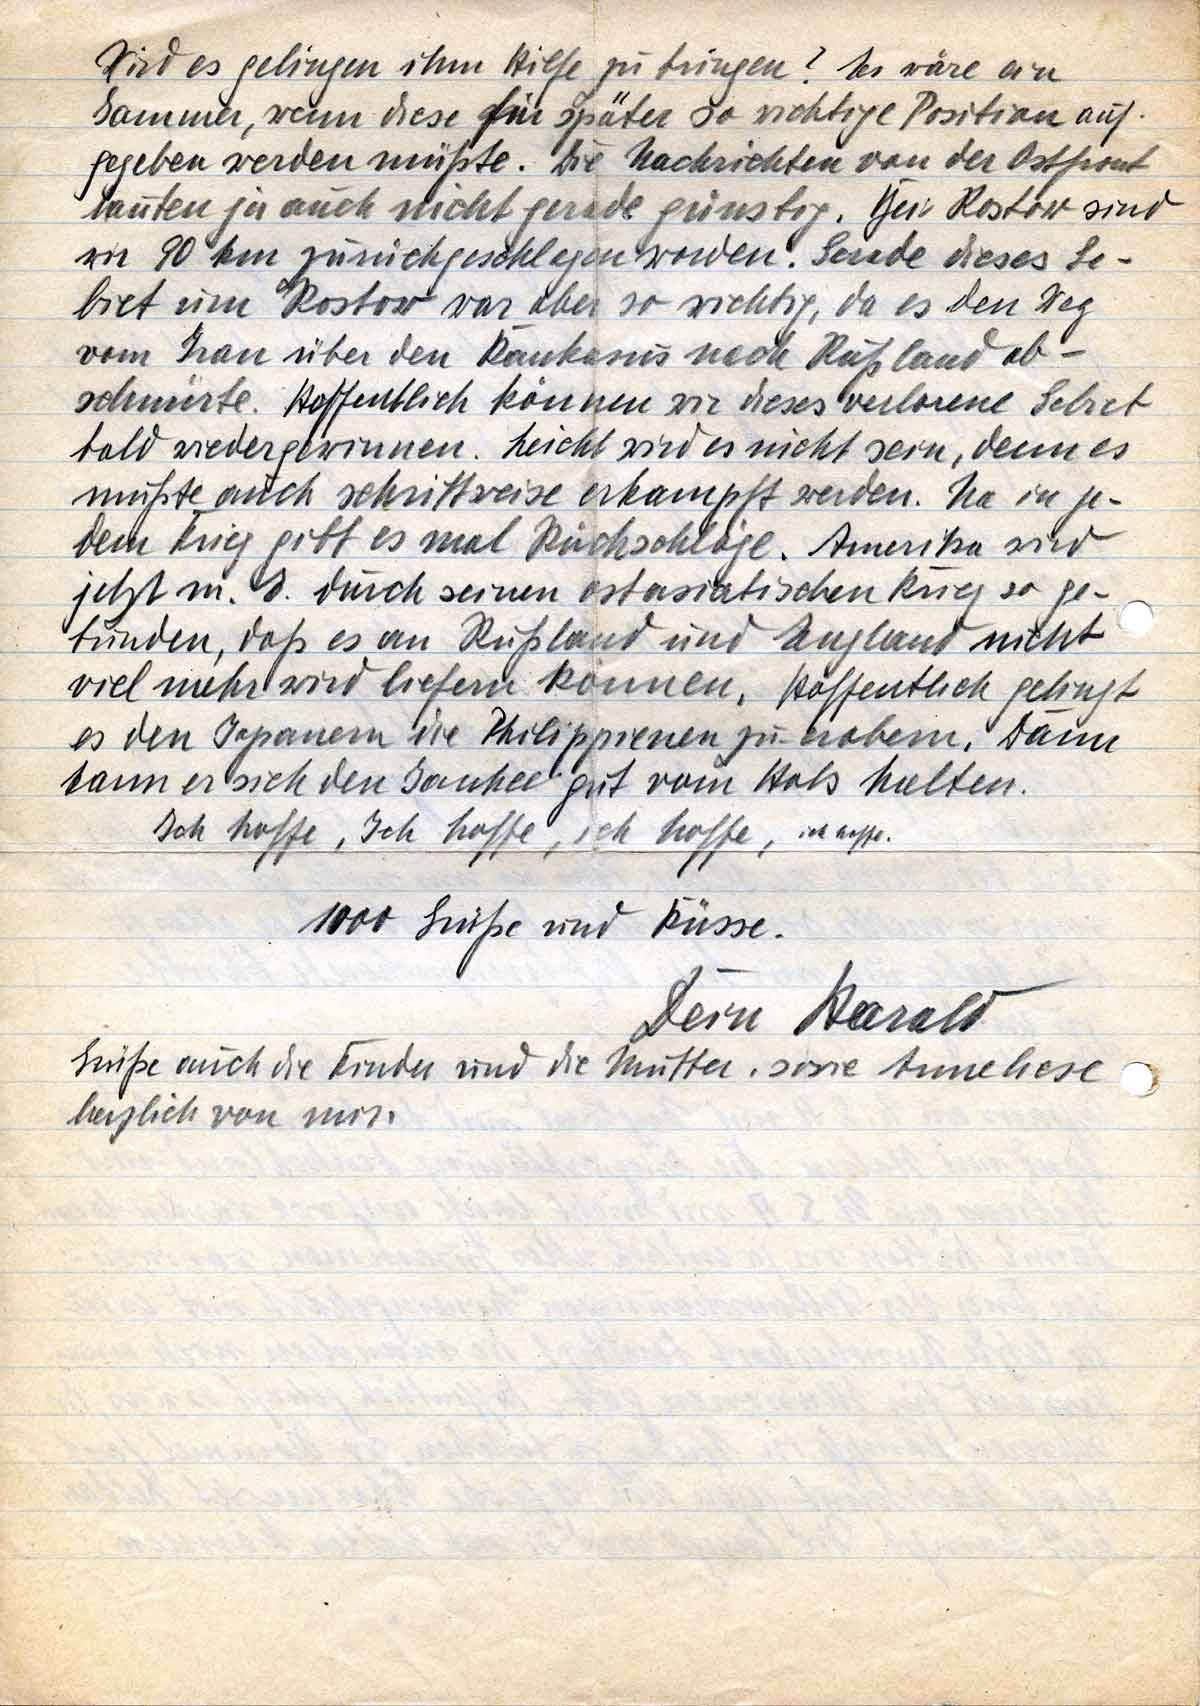 Wird es gelingen ihm Hilfe zu bringen? Es wäre ein
Jammer, wenn diese für später so wichtige Position auf-
gegeben werden müßte. Die Nachrichten von der Ostfront
lauten ja auch nicht gerade günstig. Bei Rostow sind
wir 90 km zurückgeschlagen worden. Gerade dieses Ge-
biet um Rostow war aber so wichtig, da es den Weg
vom Iran über den Kaukasus nach Rußland ab-
schnürte. Hoffentlich können wir dieses verlorene Gebiet
bald wiedergewinnen. Leicht wird es nicht sein, denn es
mußte auch schrittweise erkämpft werden. Na in je-
dem Krieg gibt es mal Rückschläge. Amerika wird
jetzt m. E. durch seinen ostasiatischen Krieg so ge-
bunden, daß es an Rußland und England nicht
viel mehr wird liefern können. Hoffentlich gelingt
es den Japanern die Philippienen zu erobern. Dann
kann er sich den Yankee gut vom Hals halten.
Ich hoffe, Ich hoffe, ich hoffe, ich hoffe.
1000 Grüße und Küsse.
Dein Harald
Grüße auch die Kinder und die Mutter, sowie Anneliese
herzlich von mir.